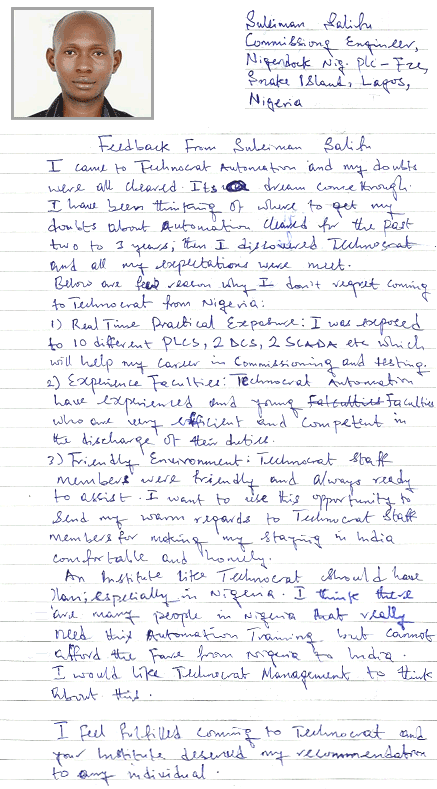 Suleiman Salihu
Commissiong Engineer,
Nigerdock Nig. Plc - Fze,
Snake Island, Lagos,
Nigeria
Feedback From Suleiman Salihu
I came to Technocrat Automation and my doubts
were all cleared. Its a dream come through.
I have been thinking of where to get my
doubts about Automation cleared for the past
two to 3 years, then I discovered Technocrat
and all my expectations were meet.
Below are few reason why I don't regret coming
to Technocrat from Nigeria:
1) Real Time Practical Exposure: I was exposed
to 10 different PLCS, 2 DCS, 2 SCADA etc which
will help my career in Commissioning and testing.
2) Experience Faculties: Technocrat Automation
have experienced and young Faculties
who are very efficient and competent in
the discharge of their duties.
3) Friendly Environment: Technocrat Staff
members were friendly and always ready
to assist. I want to use this opportunity to
Send my warm regards to Technocrat Staff
members for making my staying in India
comfortable and homely.
An Institute like Technocrat should have
especially in Nigeria. I think there
are many people in Nigeria that really
need this Automation Training but cannot
afford the fare from Nigeria to India.
I would like Technocrat Management to think
About this.
I feel fulfilled coming to Technocrat and
your Institute deserved my recommendation
to any individual.